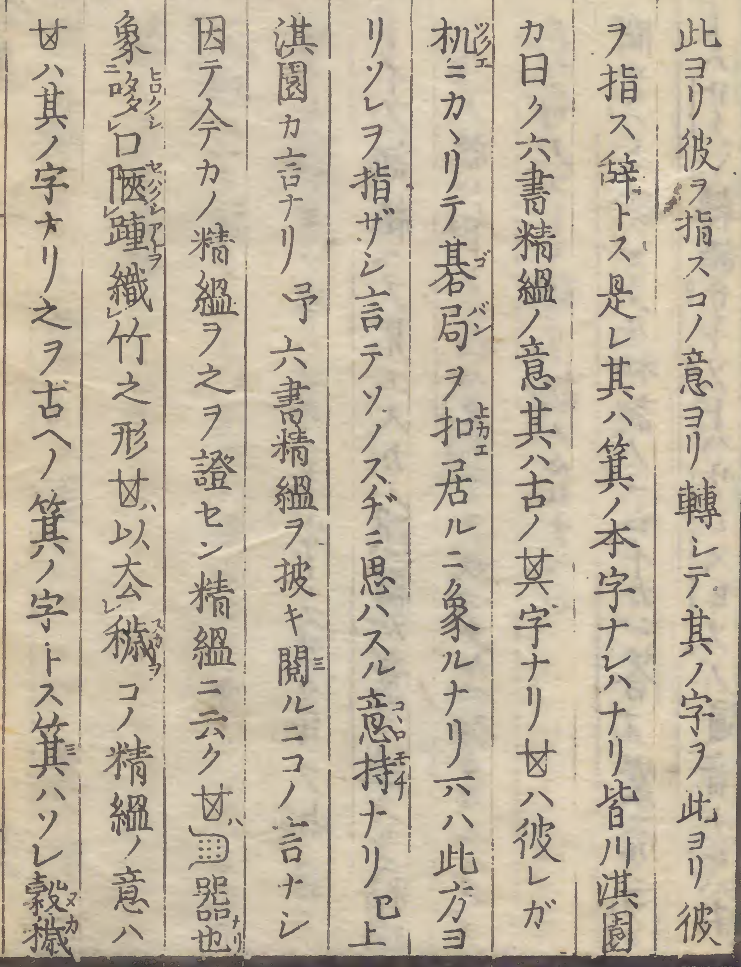 此ヨリ彼ヲ指スコノ意ヨリ轉シテ其ノ字ヲ此ヨリ彼
ヲ指ス辞トス是レ其ハ箕ノ本字ナレハナリ皆川淇園
カ曰ク六書精縕ノ意其ハ古ノ𠀠字ナリ𠀠ハ彼レガ
机ニカヽリテ碁局ヲ扣居ルニ象ルナリ丌ハ此方ヨ
リソレヲ指ザシ言テソノスヂニ思ハスル意持ナリ已上
淇園カ言ナリ予六書精縕ヲ披キ閲ルニコノ言ナシ
因テ今カノ精縕ヲ之ヲ證セン精縕ニ云ク𠀠器也
象哆口陿踵織竹之形𠀠以厺穢コノ精縕ノ意ハ
𠀠ハ其ノ字ナリ之ヲ古ヘノ箕ノ字トス箕ハソレ穀穢